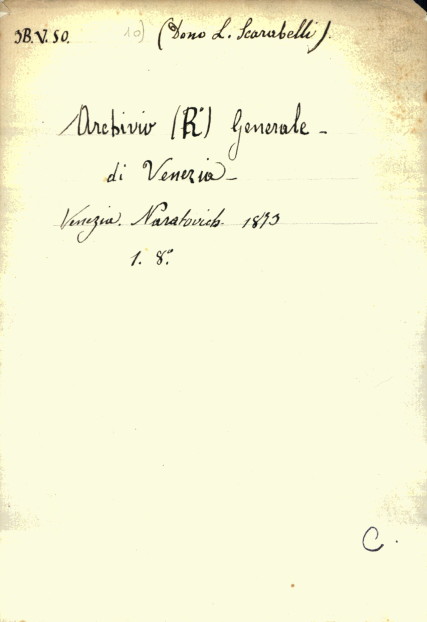 3B.V.50. 10) (Dono L. Scarabelli).
Archivio (R.º) Generale -
di Venezia -
Venezia. Naratovich. 1873
1. 8.º
C.